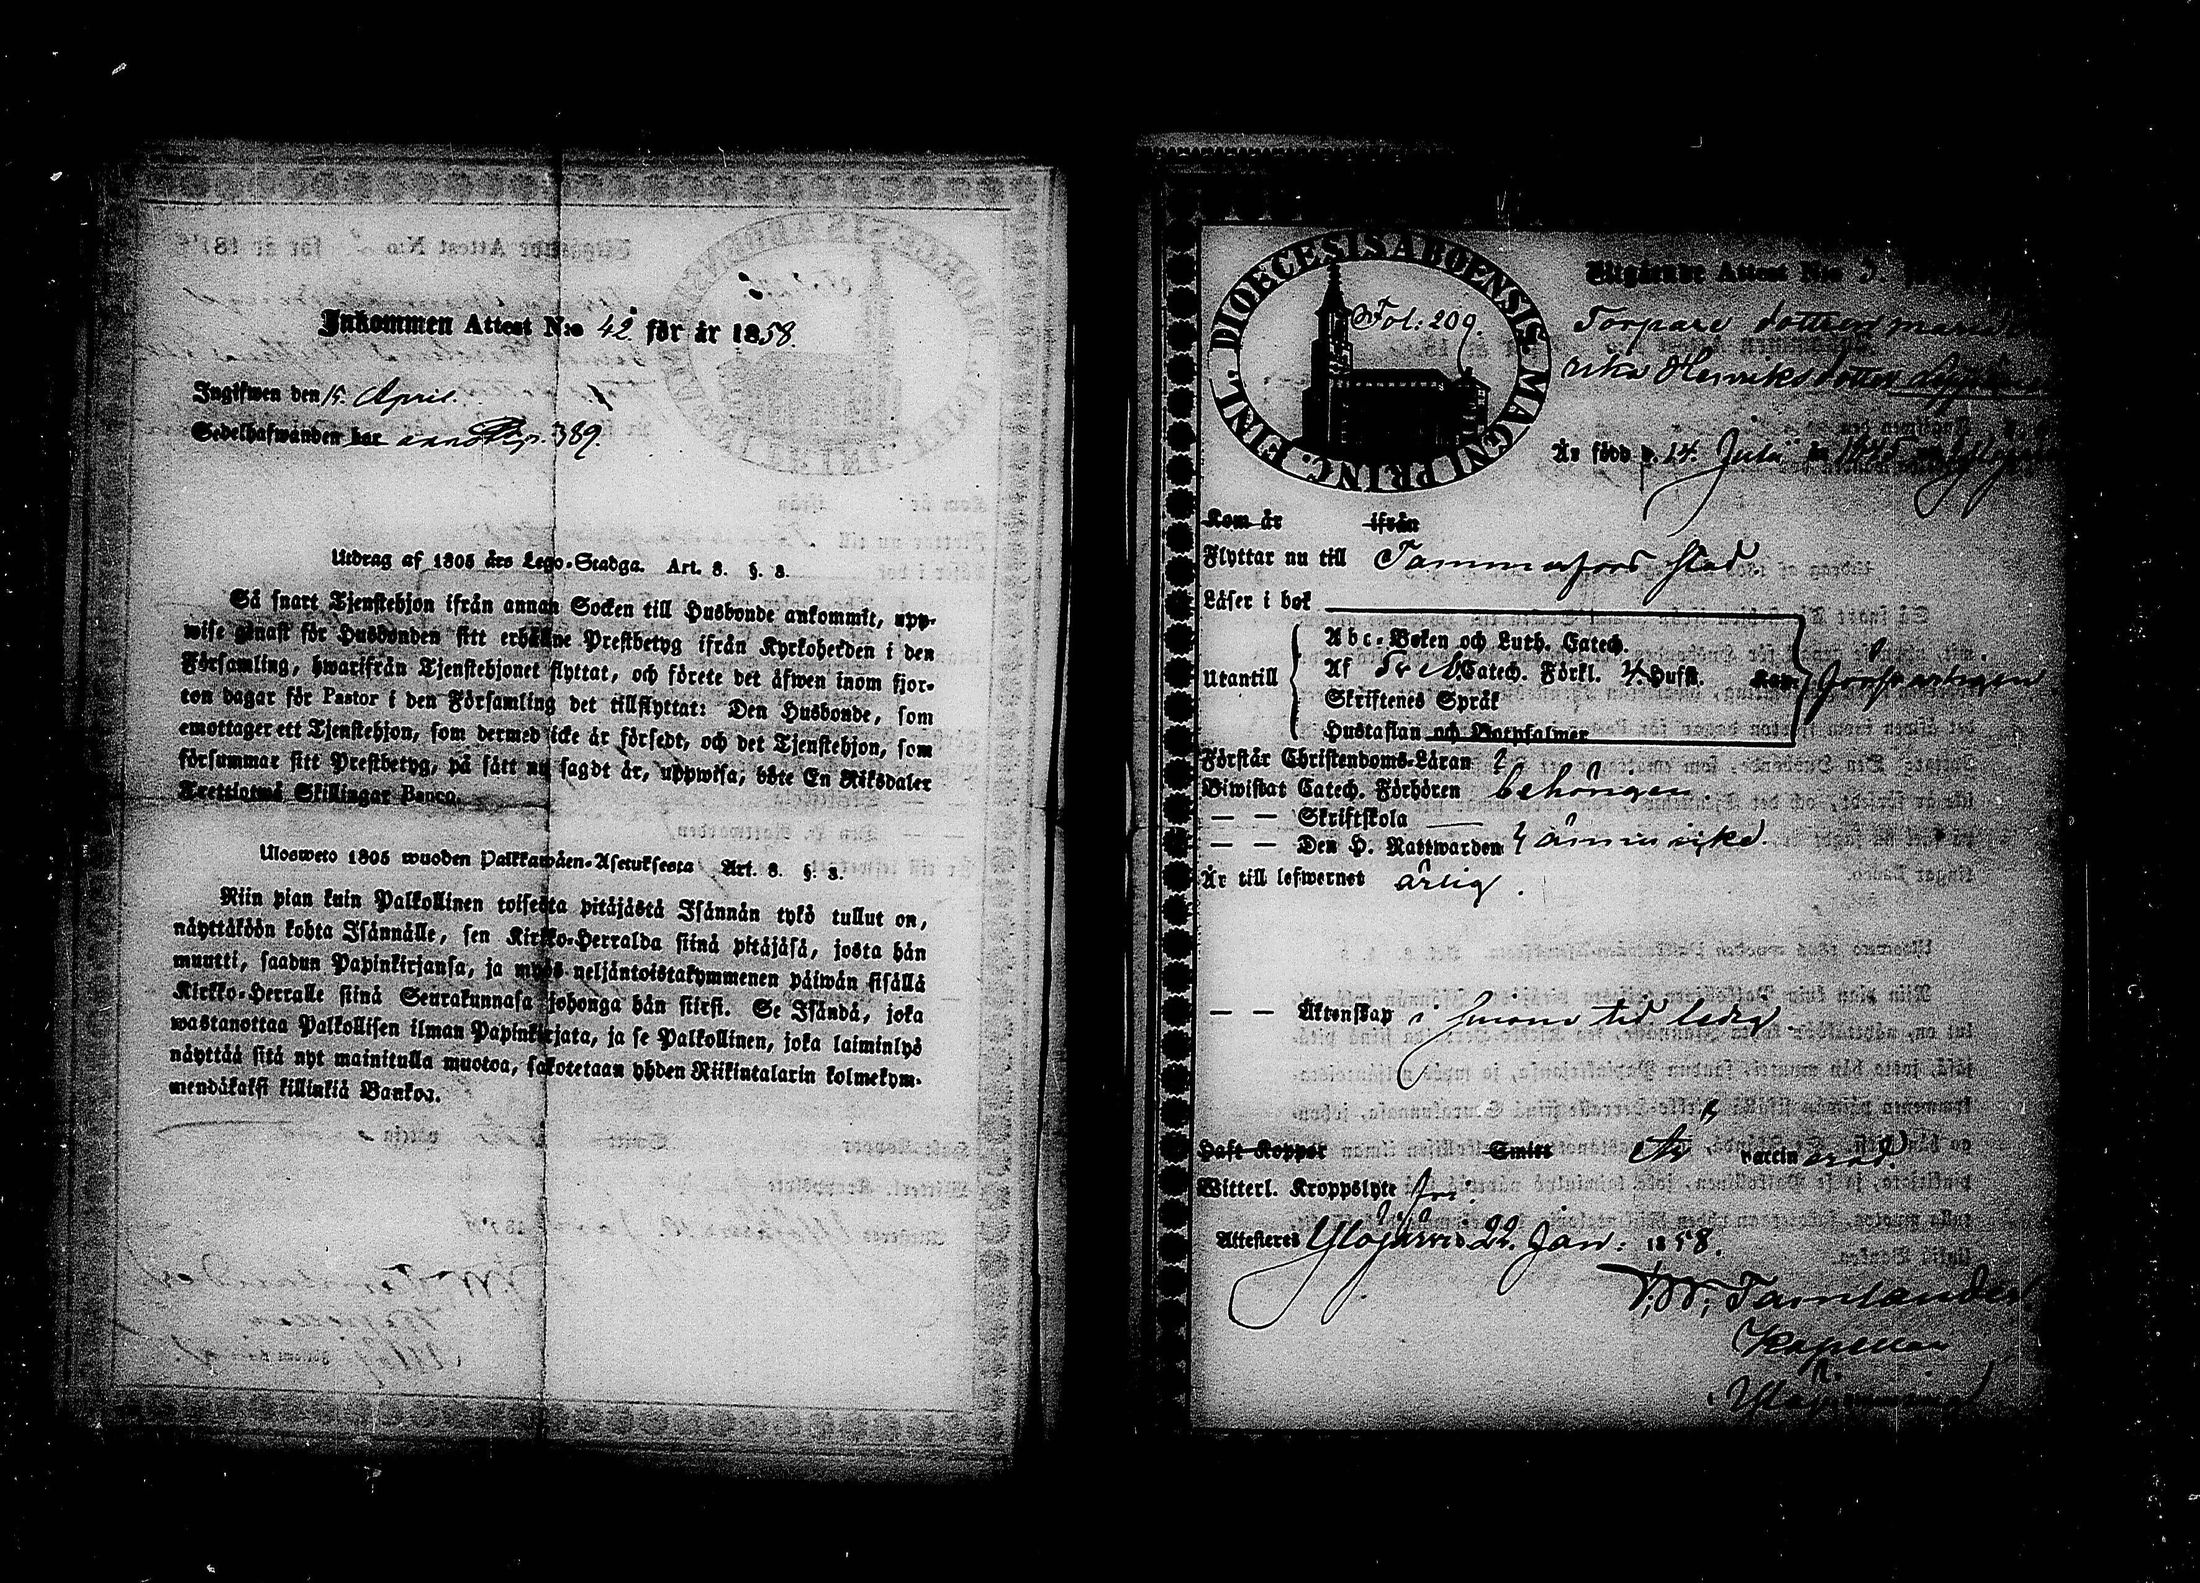 Inkommen Attest N:o 42. för år 1858.
Ingifwen den 15. April.
Sedelhafwanden har 389.
Utdrag af 1805 års Lego-Stadga. Art. 8. §. 8.
Så snart Tjenstehjon ifrån annan Socken till Husbonde ankommit, upp-
wise genast för Husbonden sitt erhållne Prestbetyg ifrån Kyrkoherden i den
Församling, hwarifrån Tjenstehjonet flyttat, och förete det äfwen inom fjor-
ton dagar för Pastor i den Församling det tillflyttat: Den Husbonde, som
emottager ett Tjenstehjon, som dermed icke är försedt, och det Tjenstehjon, som
försummar sitt Prestbetyg, på sätt nu sagdt är, uppwisa, böte En Riksdaler
Trettiotwå Skillingar Banco.
Ulosweto 1805 wuoden Palkkawäen-Asetuksesta Art. 8. §. 8.
Niin pian kuin Palkollinen toisesta pitäjästä Isännän tykö tullut on,
näyttäköön kohta Isännälle, sen Kirkko-Herralda siinä pitäjäsä, josta hän
muutti, saadun Papinkirjansa, ja myös neljäntoistakymmenen päiwän sisällä
Kirkko-Herralle siinä Seurakunnasa johonga hän siirsi. Se Isändä, joka
wastanottaa Palkollisen ilman Papinkirjata, ja se Palkollinen, joka laiminlyö
näyttää sitä nyt mainitulla muotoa, sakotetaan yhden Riikintalarin kolmekym-
mendäkaksi killinkiä Bankoa.
DIOECESIS ABOENSIS. MAGNI PRINC. FINL.
Fol: 209.
Utgående Attest N:o
Torpare dottren
Henriksdotter
Är född d. 14. Juli år 1845
Kom år ifrån
Flyttar nu till Tammerfors stad
Läser i bok
Utantill
Abc-Boken och Luth. Catech.
Af Catech. Förkl. Hufst.
Skriftenes Språk
Hustaflan och Botpsalmer
Kan försvarligen
Förstår Christendoms-Läran
Biwistat Catech. Förhören behörigen
— — Skriftskola —
— — Den H. Nattwarden
Är till lefwernet ärlig.
— — Äktenskap i hennes tid ledig
Haft Koppor Smitt Är vaccinerad.
Witterl. Kroppslyte fri.
Attesteras Ylöjärvi d. 22. Jan: 1858.
Tamlander
Kapellan